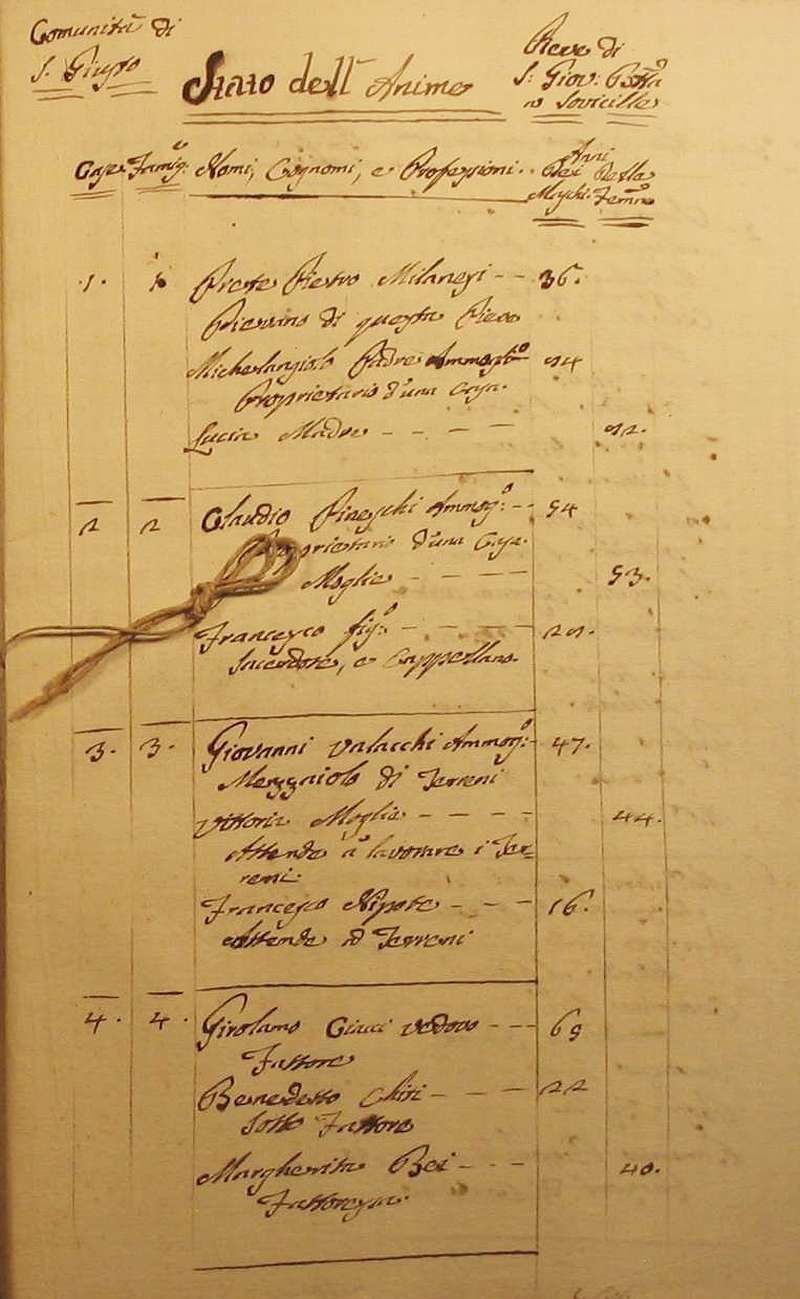 Comunità di
S. Giusto
Stato dell' Anime
Pieve di
S. Giov: Batta
a Sovicille
Case Famigo: Nomi, Cognomi, e Professioni. Anni
Dei Della
Maschi. Femine
1. 1. Prete Pietro Milanesi -- 36.
Pievano di questa Pieve
Michelangiolo Padre Ammoglo 74
Proprietario d'una Casa.
Lucia Madre - - - - 72.
2 2 Claudio Pineschi Ammogo: -- 54
Proprietario d'una Casa.
Moglie - - - - 53.
Francesco figo: - - - -
Sacerdote, e Cappellano.
3. 3. Giovanni Valacchi Ammogo: - 47.
Mezzaiolo di Terreni
Vittoria Moglie - - - - 44.
Attende a lavorare i Ter=
reni.
Francesco Nipote - - - 16.
Attende ai Terreni
4. 4. Girolamo Giaci Vedovo - - - 69
Fattore
Benedetto Chiti - - - - 22
Sotto Fattore
Margherita Bei - - - 40.
Fattoressa.